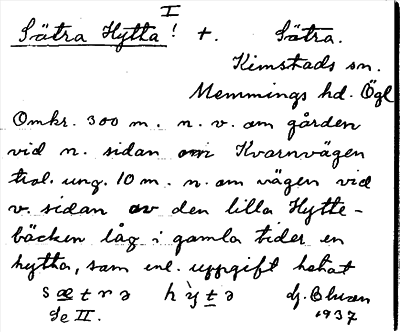 I
Sätra Hytta! +. Sätra.
Kimstads sn.
Memmings hd. Ögl
Omkr. 300 m. n. v. om gården
vid n. sidan om Kvarnvägen
tral. ung. 10 m. n. om vägen vid
v. sidan av den lilla Hytte-
bäcken låg i gamla tider en
hytta, som enl. uppgift hetat
sætrə hỳtə dj. Bluan
Se II. 1937